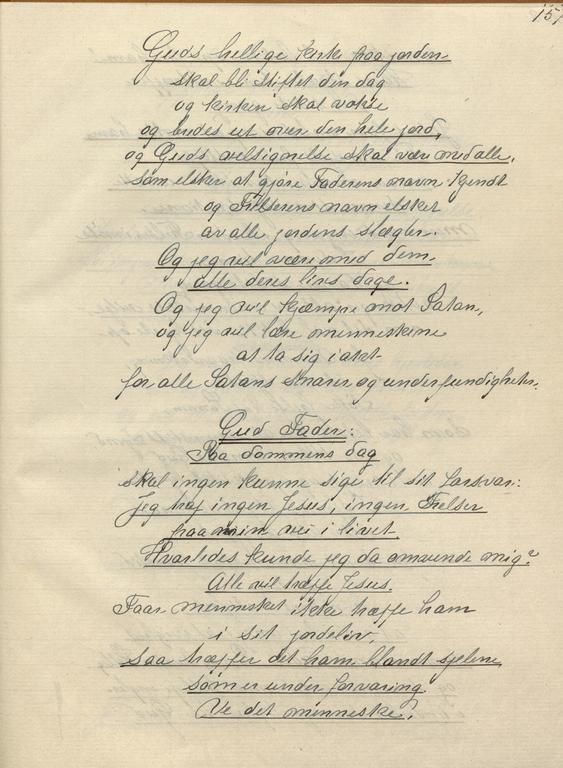 151
Guds hellige kirke paa jorden
skal bli stiftet den dag
og kirken skal vokse
og bredes ut over den hele jord,
og Guds velsignelse skal være med alle,
som elsker at gjøre Faderens navn kjendt
og Frelserens navn elsket
av alle jordens slægter.
Og jeg vil være med dem
alle deres livs dage.
Og jeg vil kjæmpe mot Satan,
og jeg vil lære menneskene
at ta sig i akt
for alle Satans snarer og underfundigheter.
Gud Fader:
Paa dommens dag
skal ingen kunne sige til sit forsvar:
Jeg traf ingen Jesus, ingen Frelser
paa min vei i livet.
Hvorledes kunde jeg da omvende mig?
Alle vil træffe Jesus.
Faar mennesket ikke træffe ham
i sit jordeliv,
saa træffer det ham blandt sjelene
som er under forvaring.
Ve det menneske,